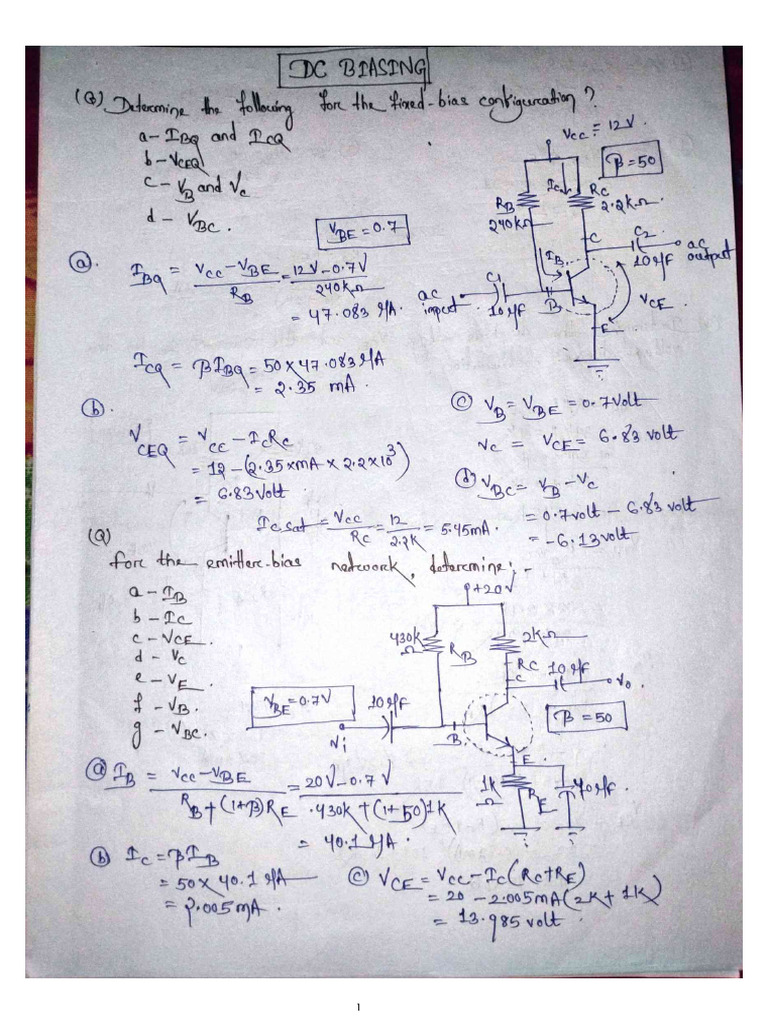 DC BIASING
(Q) Determine the following for the fixed-bias configuration?
a - I_BQ and I_CQ
b - V_CEQ
c - V_B and V_C
d - V_BC.
V_BE = 0.7
V_CC = 12V.
β = 50
I_C
R_C
2.2kΩ
R_B
240kΩ
C
C2
10μF
ac output
I_B
C1
10μF
ac input
B
E
V_CE
(a). I_BQ = (V_CC - V_BE)/R_B = (12V - 0.7V)/240kΩ
= 47.083 μA.
I_CQ = βI_BQ = 50 × 47.083 μA
= 2.35 mA.
(b).
V_CEQ = V_CC - I_C R_C
= 12 - (2.35 × mA × 2.2 × 10^3)
= 6.83 Volt
(c) V_B = V_BE = 0.7 Volt
V_C = V_CE = 6.83 volt
(d) V_BC = V_B - V_C
= 0.7 volt - 6.83 volt
= -6.13 volt
I_C sat = V_CC/R_C = 12/2.2k = 5.45mA.
(Q)
For the emitter-bias network, determine: -
a - I_B
b - I_C
c - V_CE.
d - V_C
e - V_E
f - V_B.
g - V_BC.
+20V
430kΩ
R_B
2kΩ
R_C
C
10μF
V_o
V_BE = 0.7V
10μF
V_i
B
β = 50
E
1kΩ
R_E
40μF.
(a) I_B = (V_CC - V_BE)/(R_B + (1+β)R_E) = (20V - 0.7V)/(430k + (1+50)1k)
= 40.1 μA.
(b) I_C = βI_B
= 50 × 40.1 μA
= 2.005mA.
(c) V_CE = V_CC - I_C(R_C + R_E)
= 20 - 2.005mA(2k + 1k)
= 13.985 volt
1